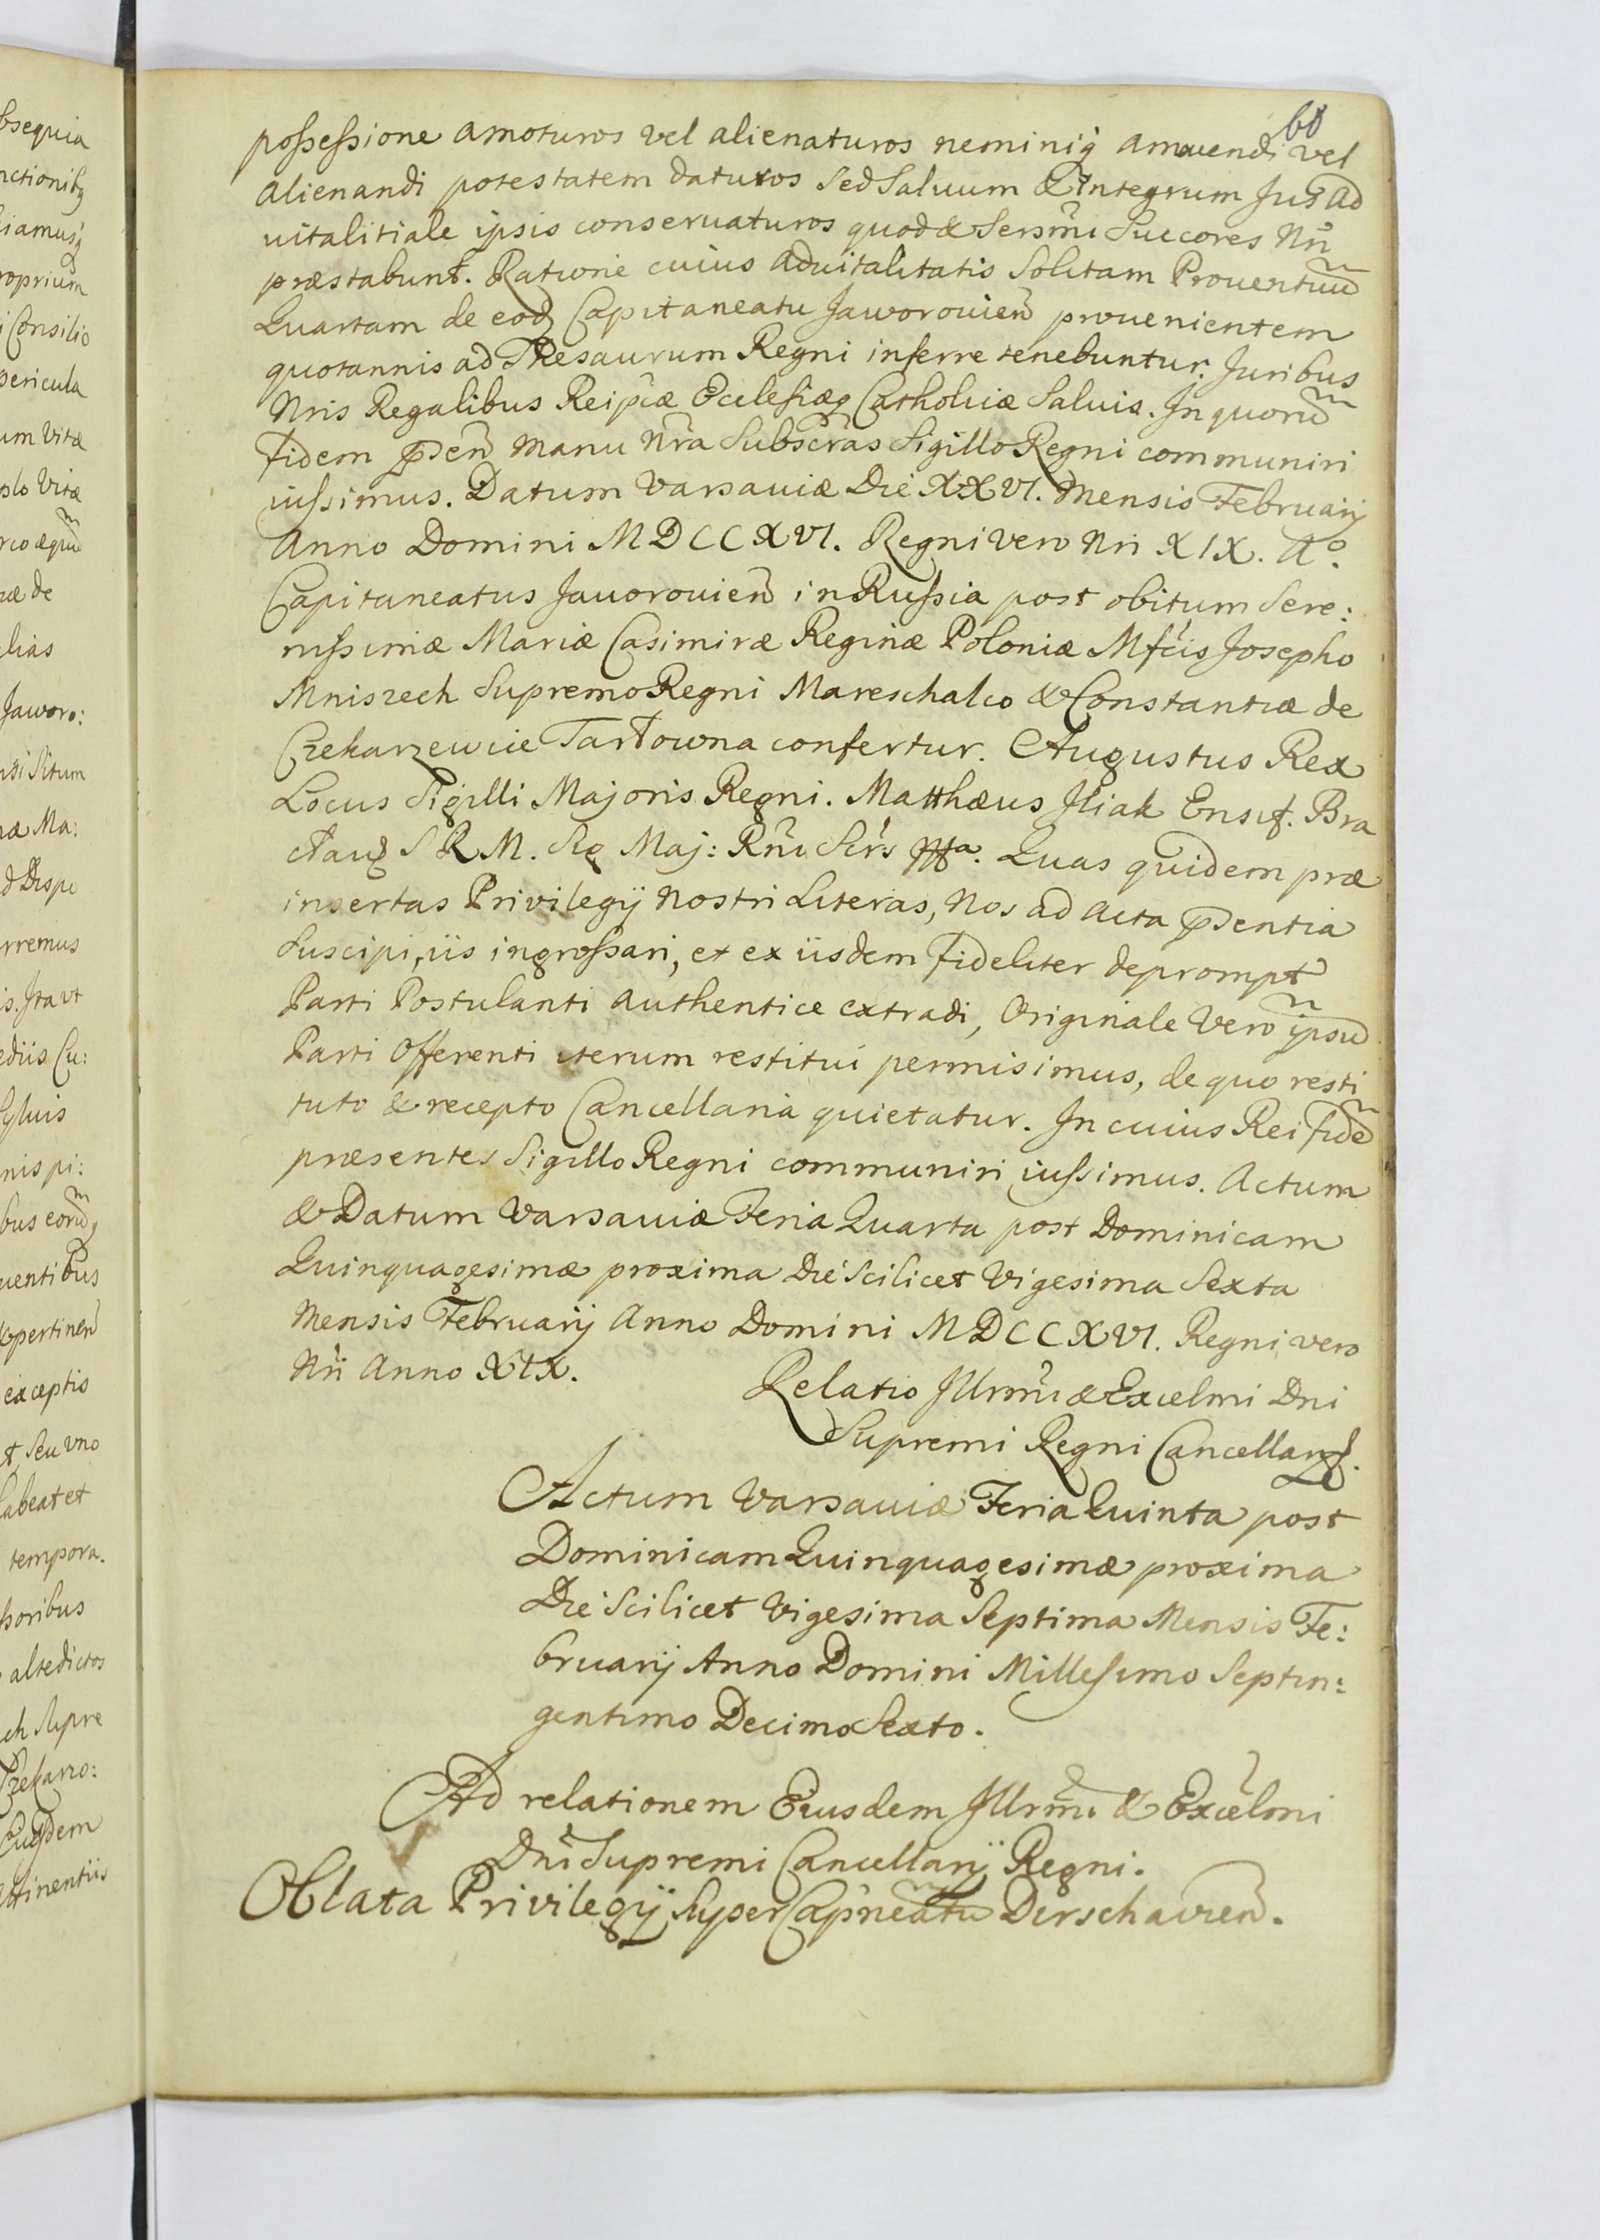 60
possessione amoturos vel alienaturos neminiq amouendi vel
alienandi potestatem daturos Sed Saluum & Integrum Jus ad
uitalitiale ipsis conseruaturos quod & Sersmi Succores Nri
præstabunt. Ratione cuius aduitalitatis Solitam Prouentuu
Quartam de eod Capitaneatu Jaworouien prouenientem
quotannis ad Thesaurum Regni inferre tenebuntur. Juribus
Nris Regalibus Reipcæ Ecclesiæq Catholicæ Saluis. In quoru
fidem pden manu Nra Subscras Sigillo Regni communiri
iussimus. Datum Varsauiæ Die XXVI. Mensis Februarij
Anno Domini MDCCXVI. Regni vero Nri XIX. Ao.
Capitaneatus Jauorouien in Russia post obitum Sere:
nissimæ Mariæ Casimiræ Reginæ Poloniæ Mfcis Josepho
Mniszech Supremo Regni Mareschalco & Constantiæ de
Czekarzewcie Tarłowna confertur. Augustus Rex
Locus Sigilli Majoris Regni. Matthæus Iliak Ensif. Bra
ctau S R M. Sig Maj: Rni Scrs Mta. Quas quidem præ
insertas Privilegij nostri Literas, Nos ad Acta pdentia
Suscipi, iis ingrossari, et ex iisdem fideliter deprompt
Parti Postulanti authentice extradi, Originale vero ipsu
Parti Offerenti iterum restitui permisimus, de quo resti
tuto & recepto Cancellaria quietatur. In cuius Rei fide
præsentes Sigillo Regni communiri iussimus. Actum
& Datum Varsauiæ Feria Quarta post Dominicam
Quinquagesimæ proxima Die Scilicet Vigesima Sexta
Mensis Februarij Anno Domini MDCCXVI. Regni vero
Nri Anno XIX.
Relatio Illrmi & Excelmi Dni
Supremi Regni Cancellarij.
Actum Varsauiæ Feria Quinta post
Dominicam Quinquagesimæ proxima
Die Scilicet Vigesima Septima Mensis Fe:
bruarij Anno Domini Millesimo Septin:
gentimo Decimo Sexto.
Ad relationem Eiusdem Illrmi & Excelmi
Dni Supremi Cancellarij Regni.
Oblata Privilegij Super Capneatu Dirschauien.